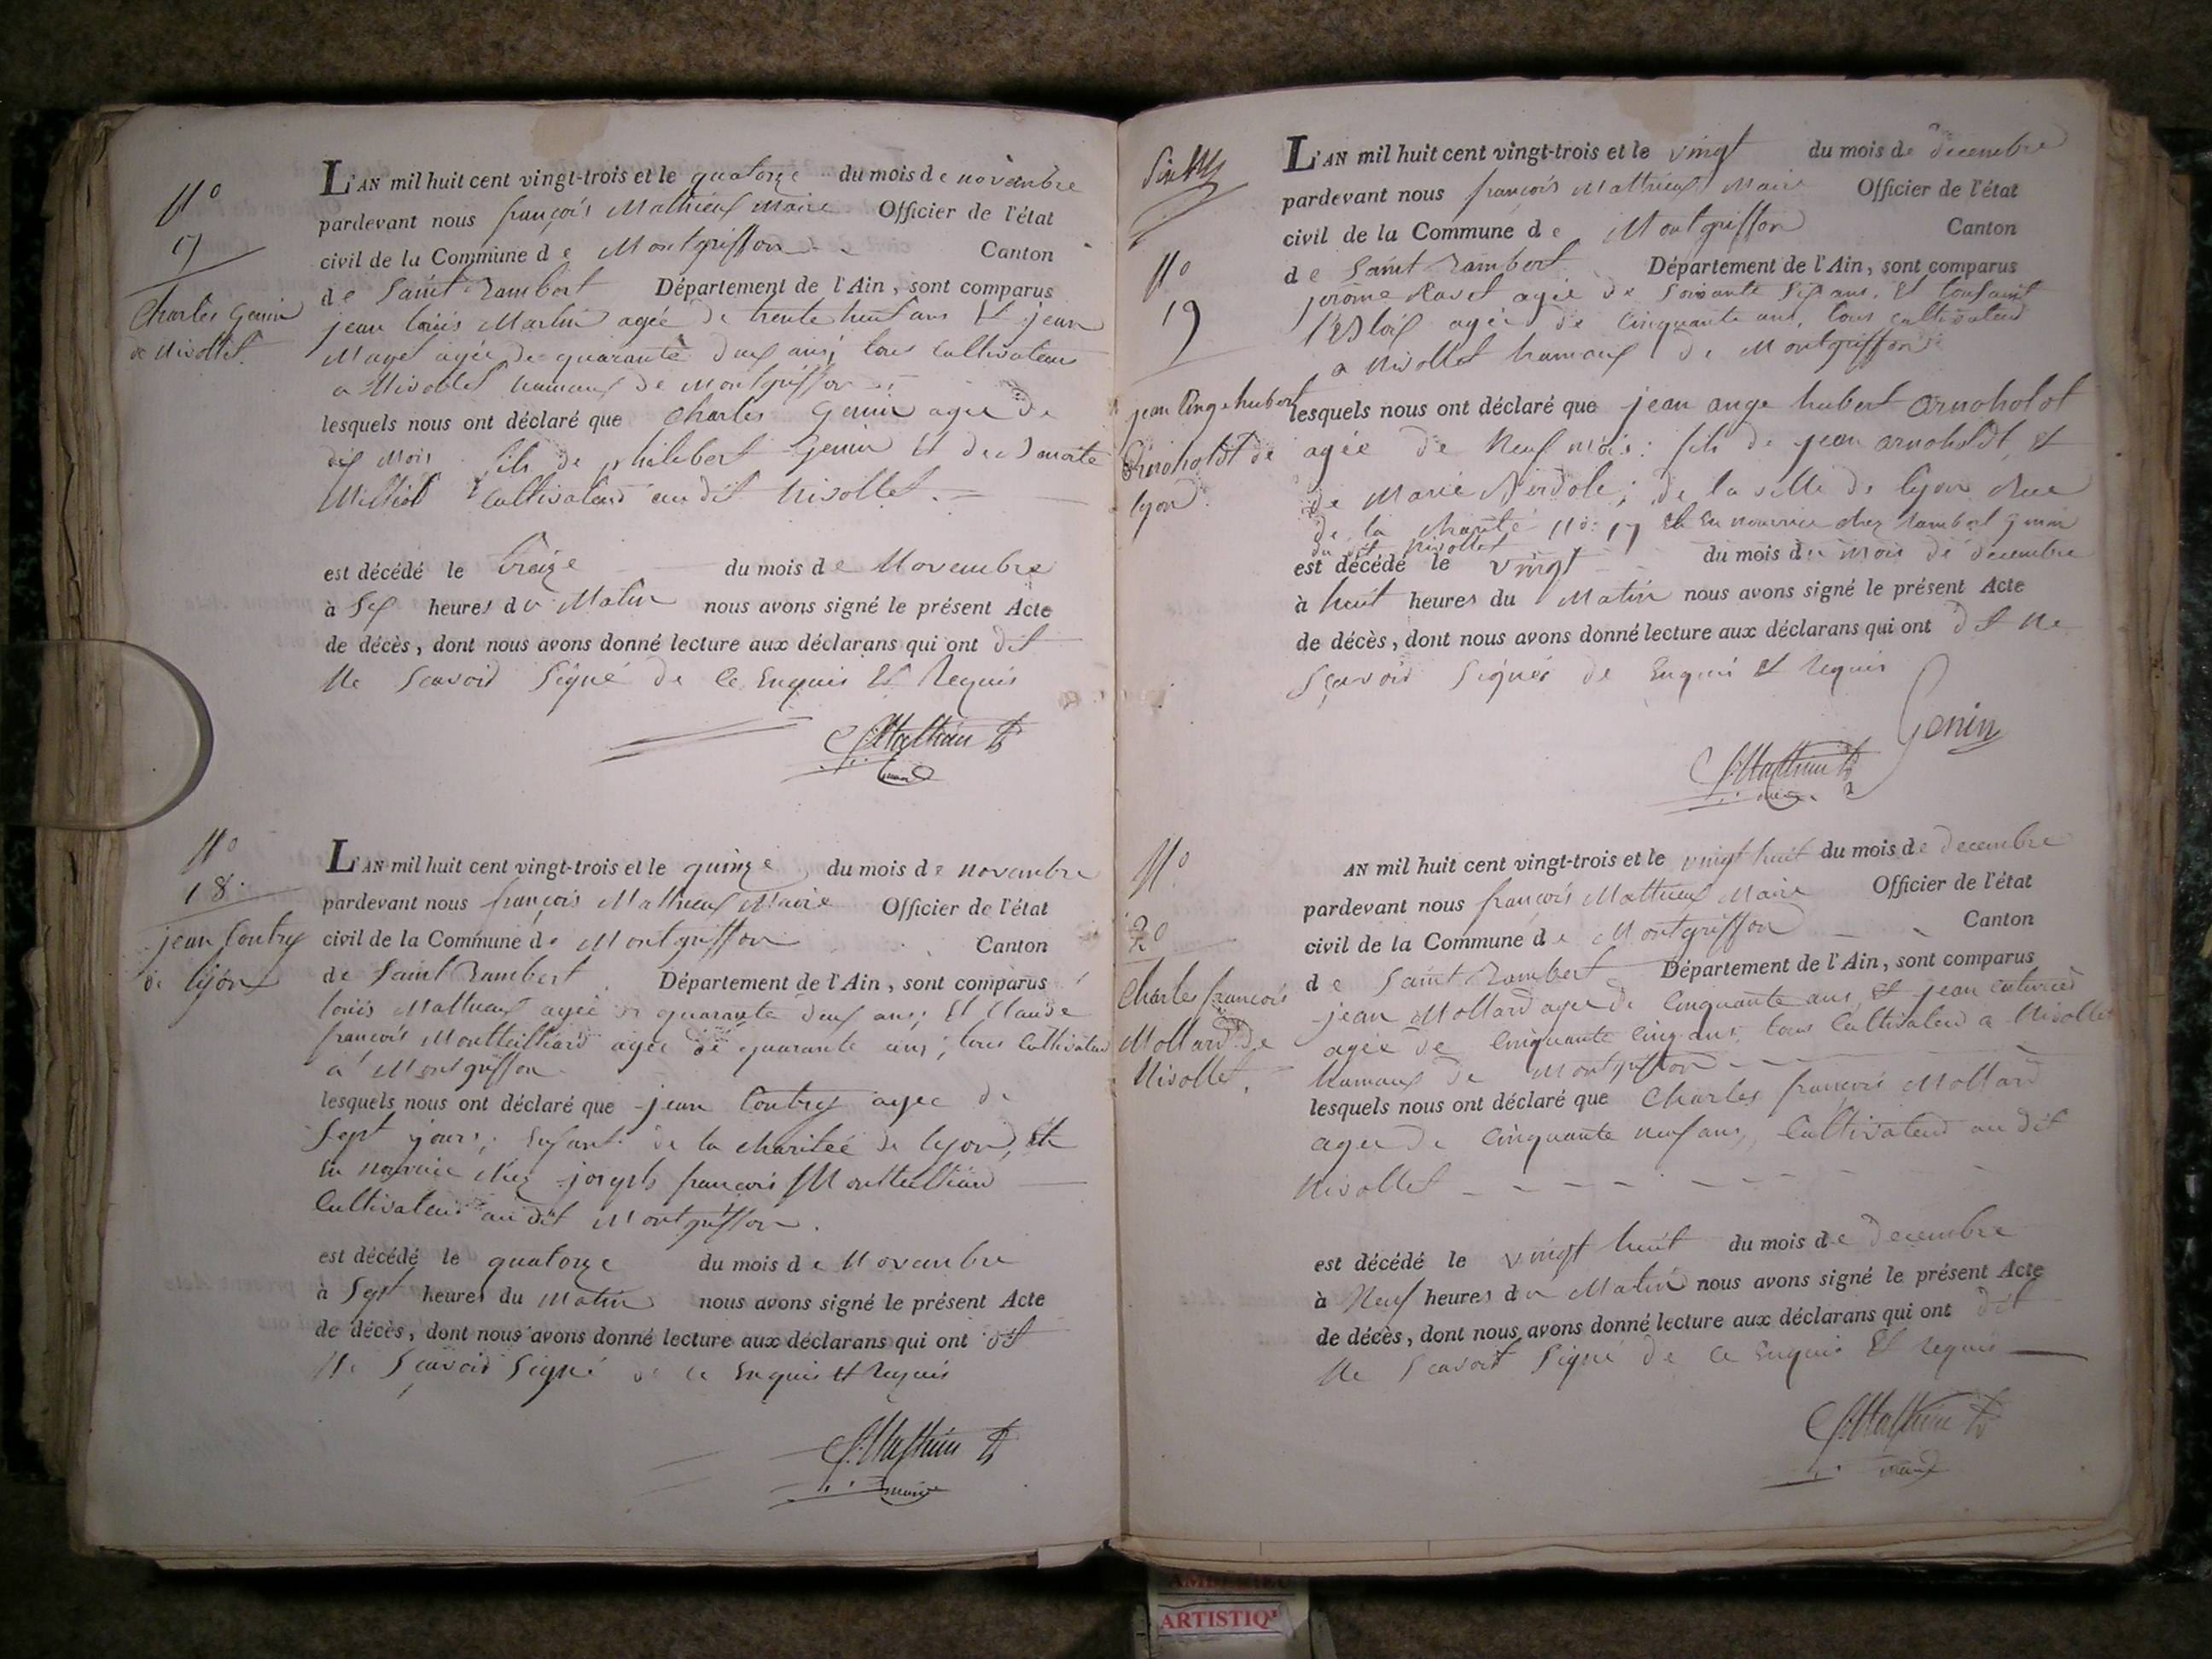 N°
17
Charles Genin
de Nivollet.
L'AN mil huit cent vingt-trois et le quatorze du mois de novembre
pardevant nous françois Mathieux maire Officier de l'état
civil de la Commune de Montgriffon Canton
de Saint Rambert Département de l'Ain, sont comparus
jean louis Martin agée de trente huit ans Et jean
Mayet agée de quarante deux ans; tous Cultivateurs
a Nivollet hamaux de Montgriffon
lesquels nous ont déclaré que Charles Genin agée de
dix mois fils de philibert Genin Et de
Cultivateurs au dit Nivollet.
est décédé le treize du mois de Novembre
à Six heures du Matin nous avons signé le présent Acte
de décès, dont nous avons donné lecture aux déclarans qui ont dit
Ne Scavoir Signé de Ce Enquis Et Requis
Mathieux
maire
N°
18.
jean Contry
de lyon
L'AN mil huit cent vingt-trois et le quinze du mois de novembre
pardevant nous françois Mathieux Maire Officier de l'état
civil de la Commune de Montgriffon Canton
de Saint Rambert Département de l'Ain, sont comparus
louis Mathieux agée de quarante deux ans; Et Claude
françois Montteilliard agée de quarante ans; tous Cultivateur
a Montgriffon
lesquels nous ont déclaré que jean Contry agée de
Sept jours; Enfant de la charitée de lyon, Et
En nourrice chez joseph françois Montteilliard
Cultivateur au dit Montgriffon.
est décédé le quatorze du mois de Novembre
à Sept heures du Matin nous avons signé le présent Acte
de décès, dont nous avons donné lecture aux déclarans qui ont dit
Ne Sçavoir Signé de Ce Enquis Et Requis
Mathieux
maire
N°
19
jean Ange hubert
Arnoholdt de
lyon.
L'AN mil huit cent vingt-trois et le vingt du mois de decembre
pardevant nous françois Mathieux Maire Officier de l'état
civil de la Commune de Montgriffon Canton
de Saint Rambert Département de l'Ain, sont comparus
jerôme Ravet agée de Soixante Six ans, Et tousaint
agée de Cinquante ans, tous cultivateurs
a Nivollet hamaux de Montgriffon
lesquels nous ont déclaré que jean ange hubert Arnoholdt
agée de Neuf mois: fils de jean arnoholdt, Et
de Marie ; de la ville de lyon Rue
de la charité No: 17 Et En nourrice chez Rambert Genin
du dit Nivollet
est décédé le vingt du mois du mois de decembre
à huit heures du Matin nous avons signé le présent Acte
de décès, dont nous avons donné lecture aux déclarans qui ont dit Ne
Sçavoir Signér de Enquis Et Requis
Genin
Mathieux
maire
N°
20
Charles françois
Mollard de
Nivollet.
AN mil huit cent vingt-trois et le vingt huit du mois de decembre
pardevant nous françois Mathieux Maire Officier de l'état
civil de la Commune de Montgriffon Canton
de Saint Rambert Département de l'Ain, sont comparus
jean Mollard agée de Cinquante ans, Et jean
agée de Cinquante Cinq ans, tous Cultivateur a Nivollet
hamaux de Montgriffon
lesquels nous ont déclaré que Charles françois Mollard
agée de Cinquante neuf ans, Cultivateur au dit
Nivollet
est décédé le vingt huit du mois de decembre
à Neuf heures du Matin nous avons signé le présent Acte
de décès, dont nous avons donné lecture aux déclarans qui ont dit
Ne Scavoir Signé de Ce Enquis Et requis
Mathieux
maire
ARTISTIQ